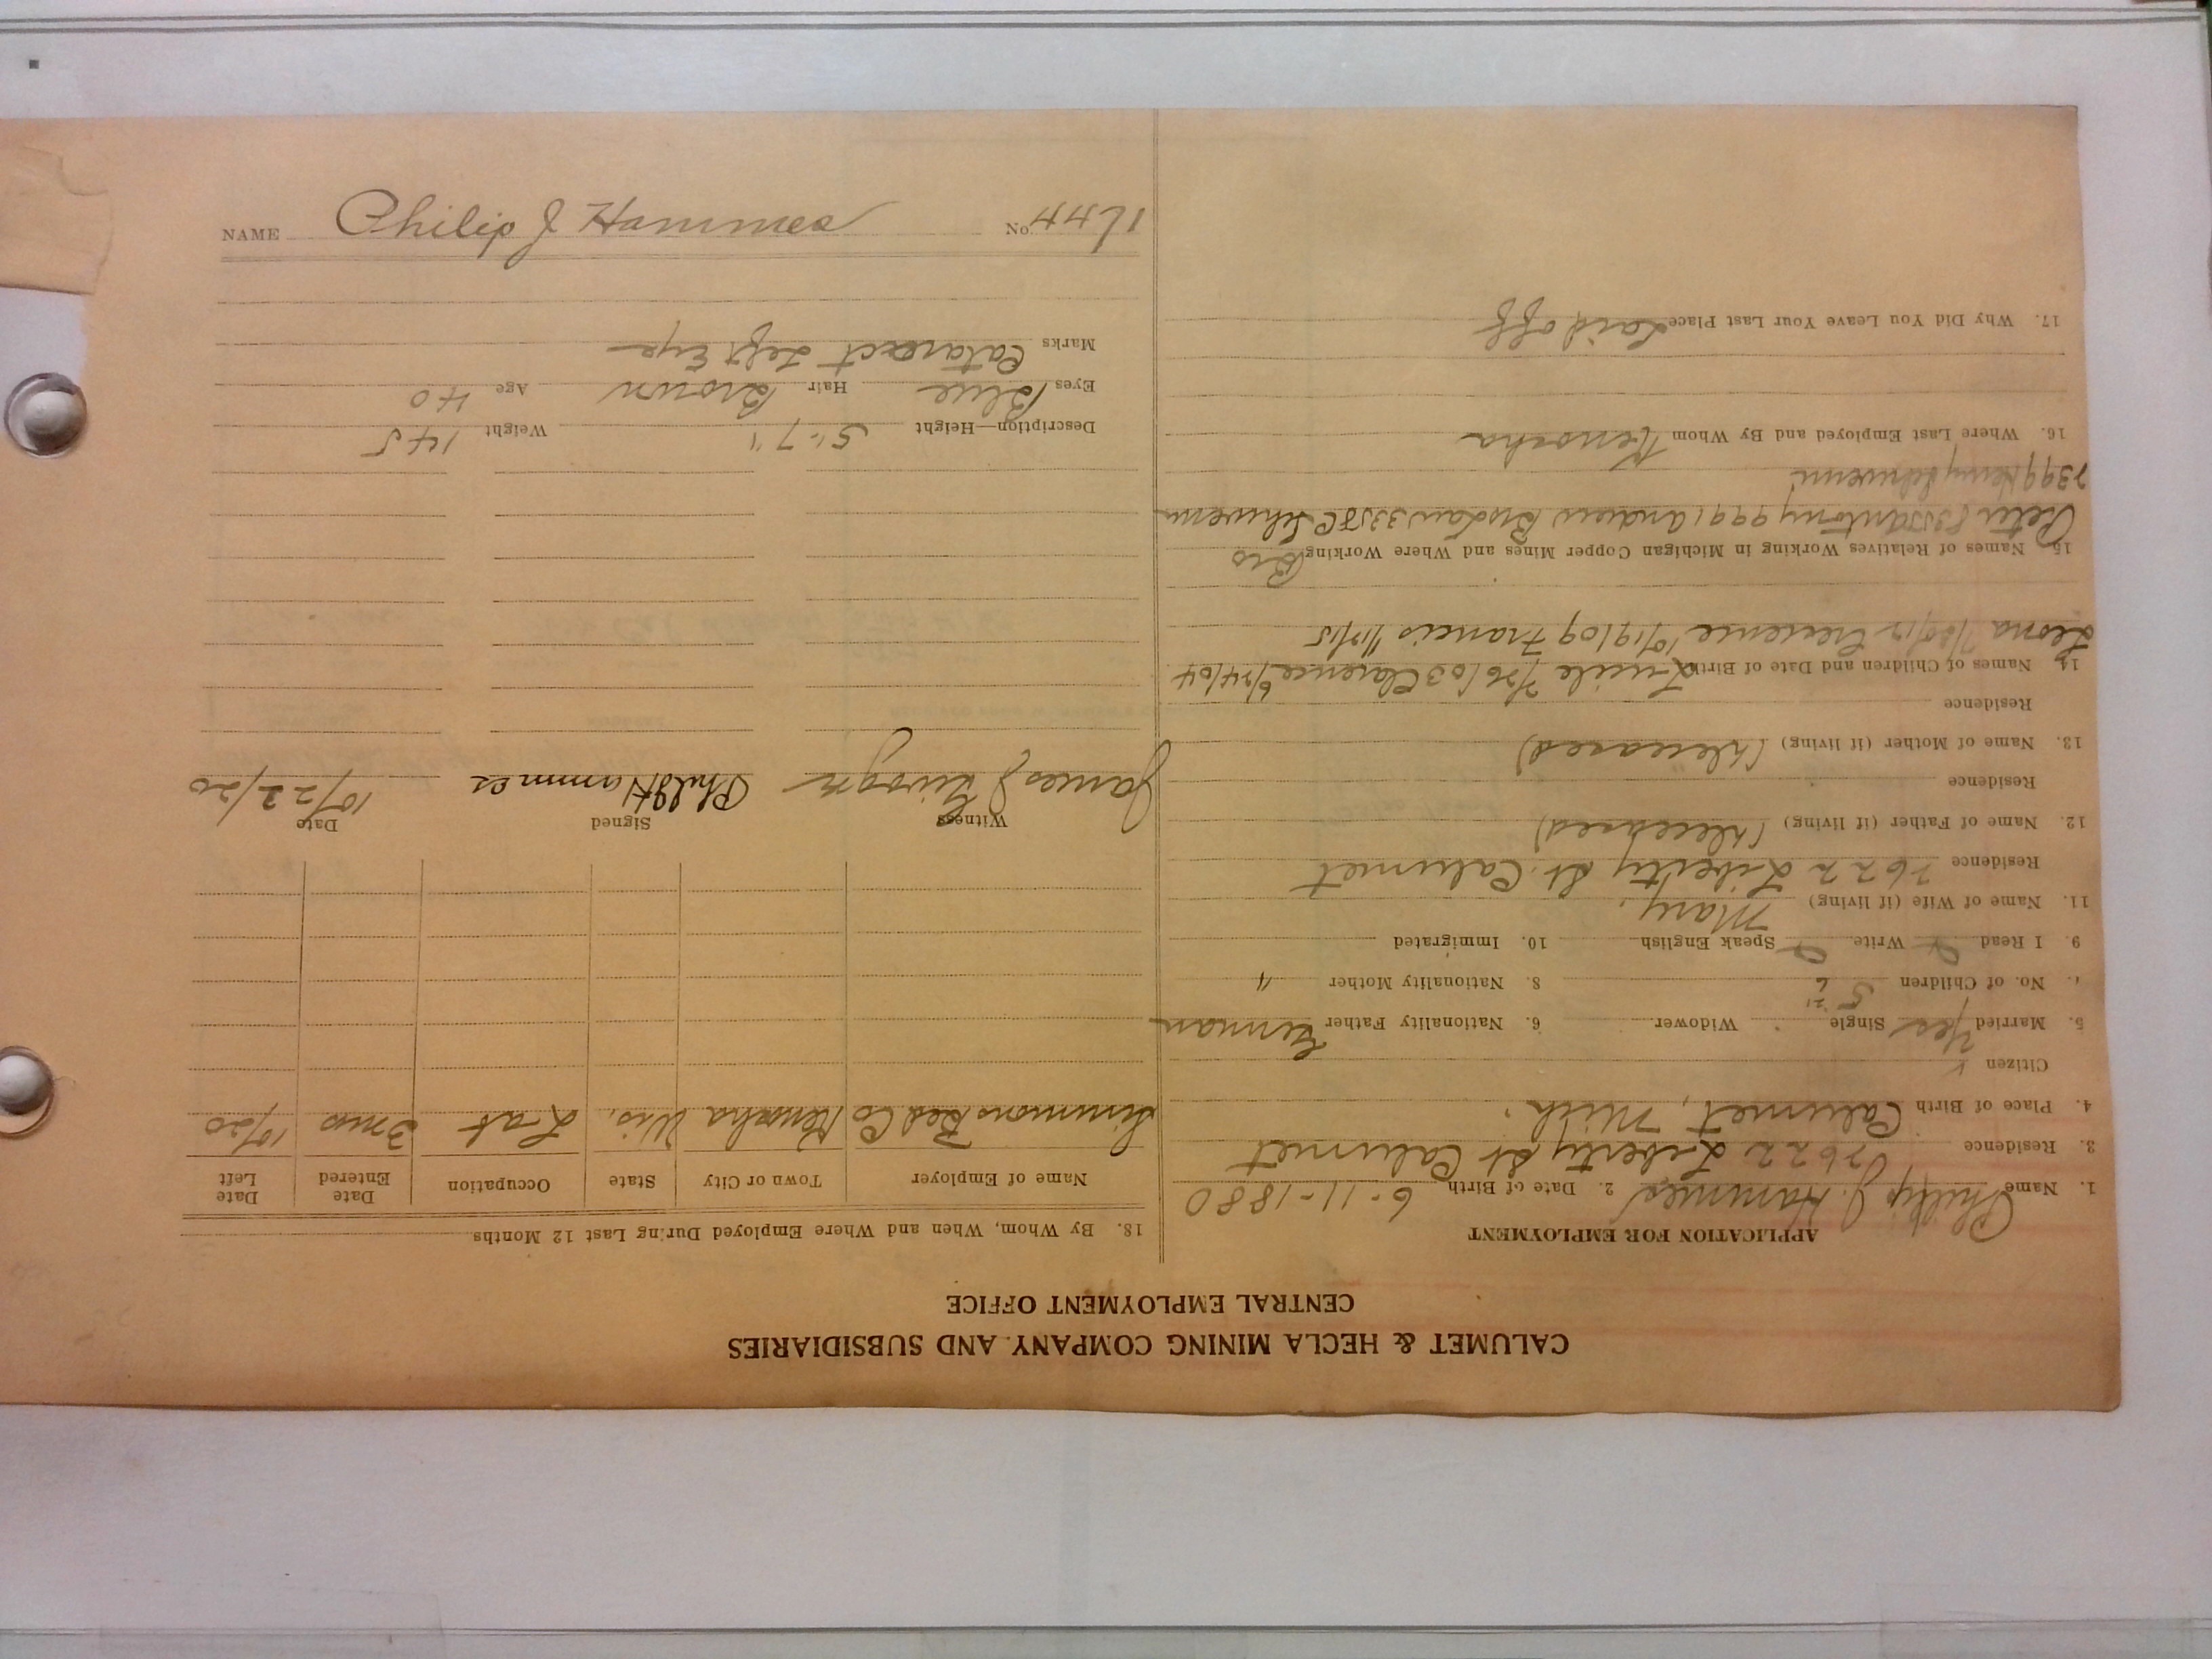 CALUMET & HECLA MINING COMPANY AND SUBSIDIARIES
CENTRAL EMPLOYMENT OFFICE
APPLICATION FOR EMPLOYMENT
1. Name Philip J. Hammes 2. Date of Birth 6-11-1880
3. Residence 2622 Liberty St Calumet
4. Place of Birth Calumet, Mich.
Citizen
5. Married Yes Single Widower 6. Nationality Father German
7. No. of Children 5 8. Nationality Mother "
9. I Read Write Speak English 10. Immigrated
11. Name of Wife (if living) Mary.
Residence 2622 Liberty St. Calumet
12. Name of Father (if living) (deceased)
Residence
13. Name of Mother (if living) (deceased)
Residence
14. Names of Children and Date of Birth Lucile 7/26/03 Clarence 6/24/04
Leona 10/19/09 Francis
15. Names of Relatives Working in Michigan Copper Mines and Where Working Bro
Peter Antony 9991 Andrew
Henry
16. Where Last Employed and By Whom Kenosha
17. Why Did You Leave Your Last Place Laid off
18. By Whom, When and Where Employed During Last 12 Months
Name of Employer Town or City State Occupation Date Entered Date Left
Simmons Bed Co Kenosha Wis. Lab 3 mos 10/20
Witness Signed Date
James J Phil J Hammes 10/22/20
Description—Height 5'-7" Weight 145
Eyes Blue Hair Brown Age 40
Marks Cataract Left Eye
NAME Philip J Hammes No.